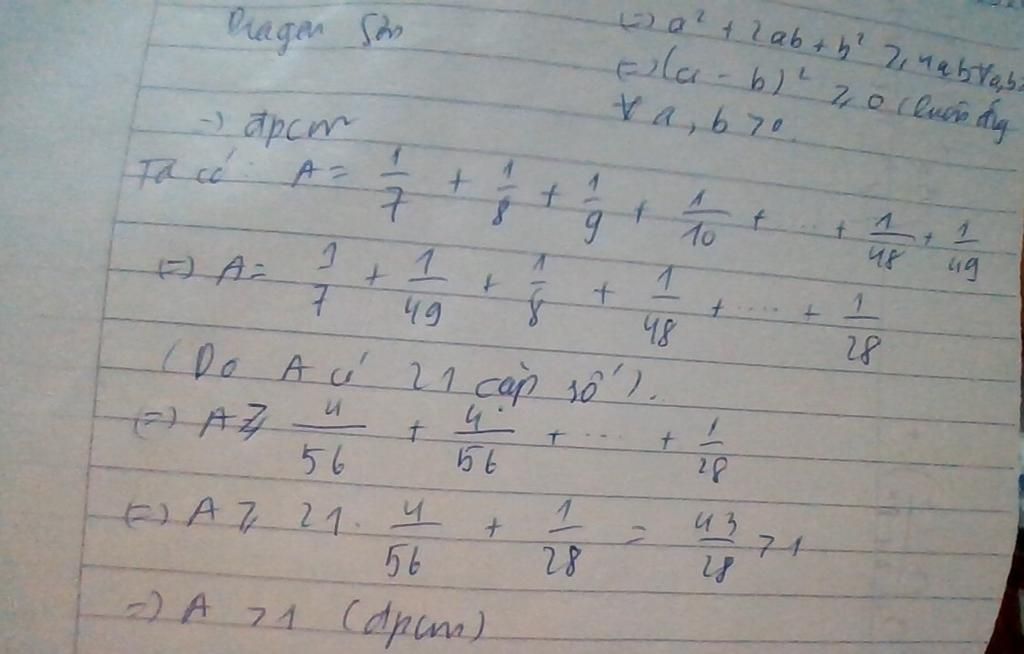 Dragon Sơn
⇔ a² + 2ab + b² ≥ 4ab ∀a,b
⇔ (a - b)² ≥ 0 (luôn đúng
∀ a, b > 0
→ đpcm
Ta có: A = 1/7 + 1/8 + 1/9 + 1/10 + ... + 1/48 + 1/49
⇔ A = 1/7 + 1/49 + 1/8 + 1/48 + .... + 1/28
(Do A có 21 cặp số).
⇔ A ≥ 4/56 + 4/56 + ... + 1/28
⇔ A ≥ 21. 4/56 + 1/28 = 43/28 > 1
⇒ A > 1 (đpcm)